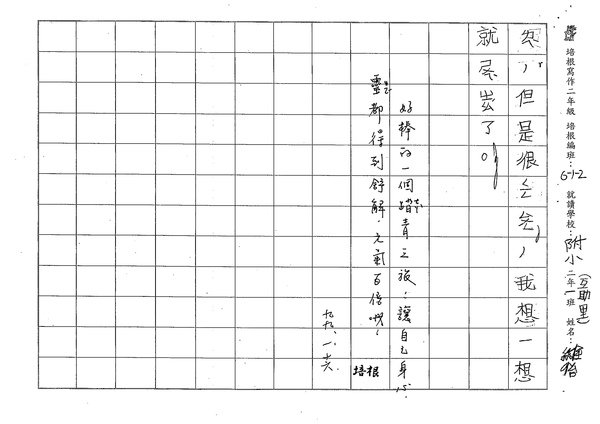 培根寫作二年級 培根編班：6-1-2 就讀學校：附小(互助里)二年一班 姓名：
忽，但是很　　，我想一想
就　出了。
好棒的一個踏青之旅！讓自己身心
靈都得到舒解，元氣百倍哦！
培根
九九、一、十六